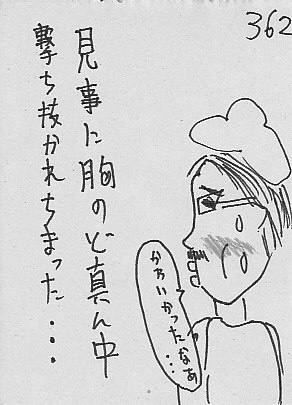 362
見事に胸のど真ん中
撃ち抜かれちまった・・・
かわいかったなぁ
・・・